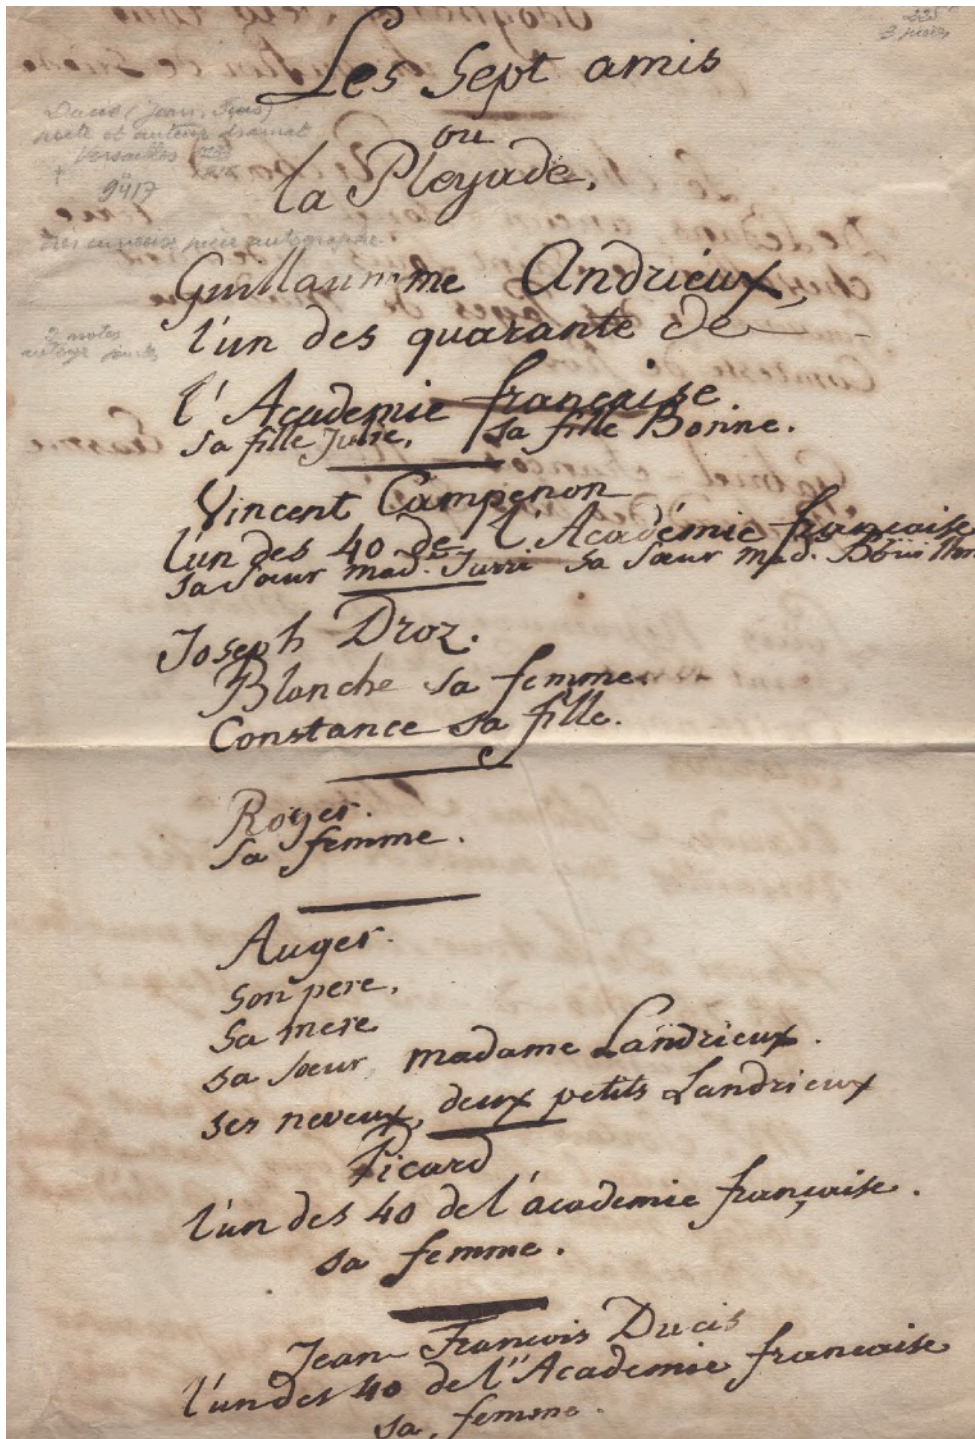 Les Sept amis
ou
la Pleyade.
Ducis (Jean, Frçois)
poete et auteur dramat
Versailles
9417
très curieuse pièce autographe
Guillaumme Andrieux,
l'un des quarante de
l'Academie française
sa fille Julie, sa fille Bonine.
Vincent Campenon
l'un des 40 de l'Académie française
sa sœur mad. Jurri sa sœur mad.
Joseph Droz.
Blanche sa femme.
Constance sa fille.
Roger.
sa femme.
Auger.
son pere,
sa mere
sa sœur, madame Landrieux.
ses neveux, deux petits Landrieux
Picard
l'un des 40 de l'academie française.
sa femme.
Jean François Ducis
l'un des 40 de l'Academie française
sa femme.